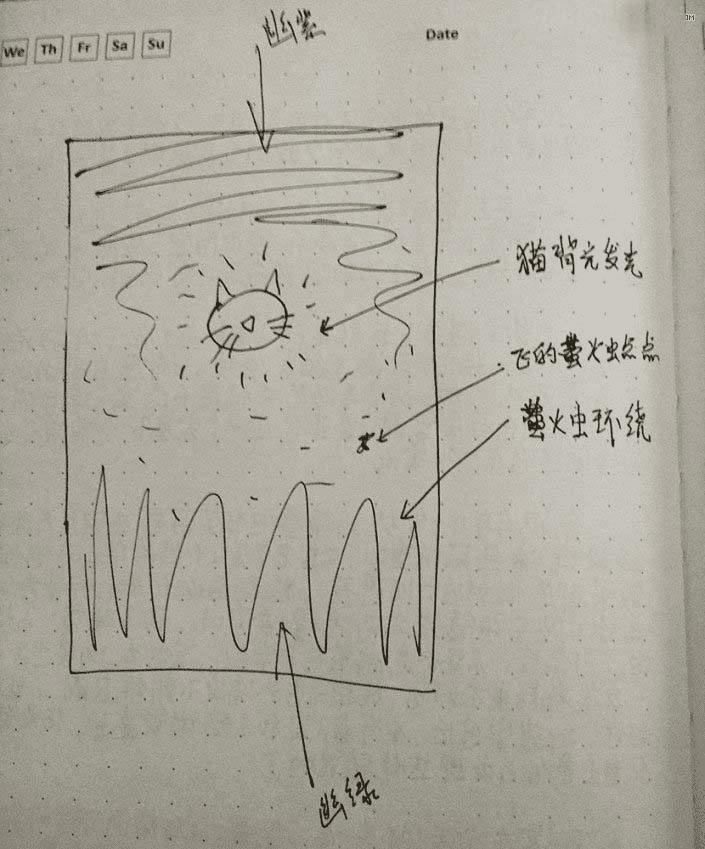 We Th Fr Sa Su
Date
幽紫
猫背光发光
飞的萤火虫点点
萤火虫环绕
幽绿